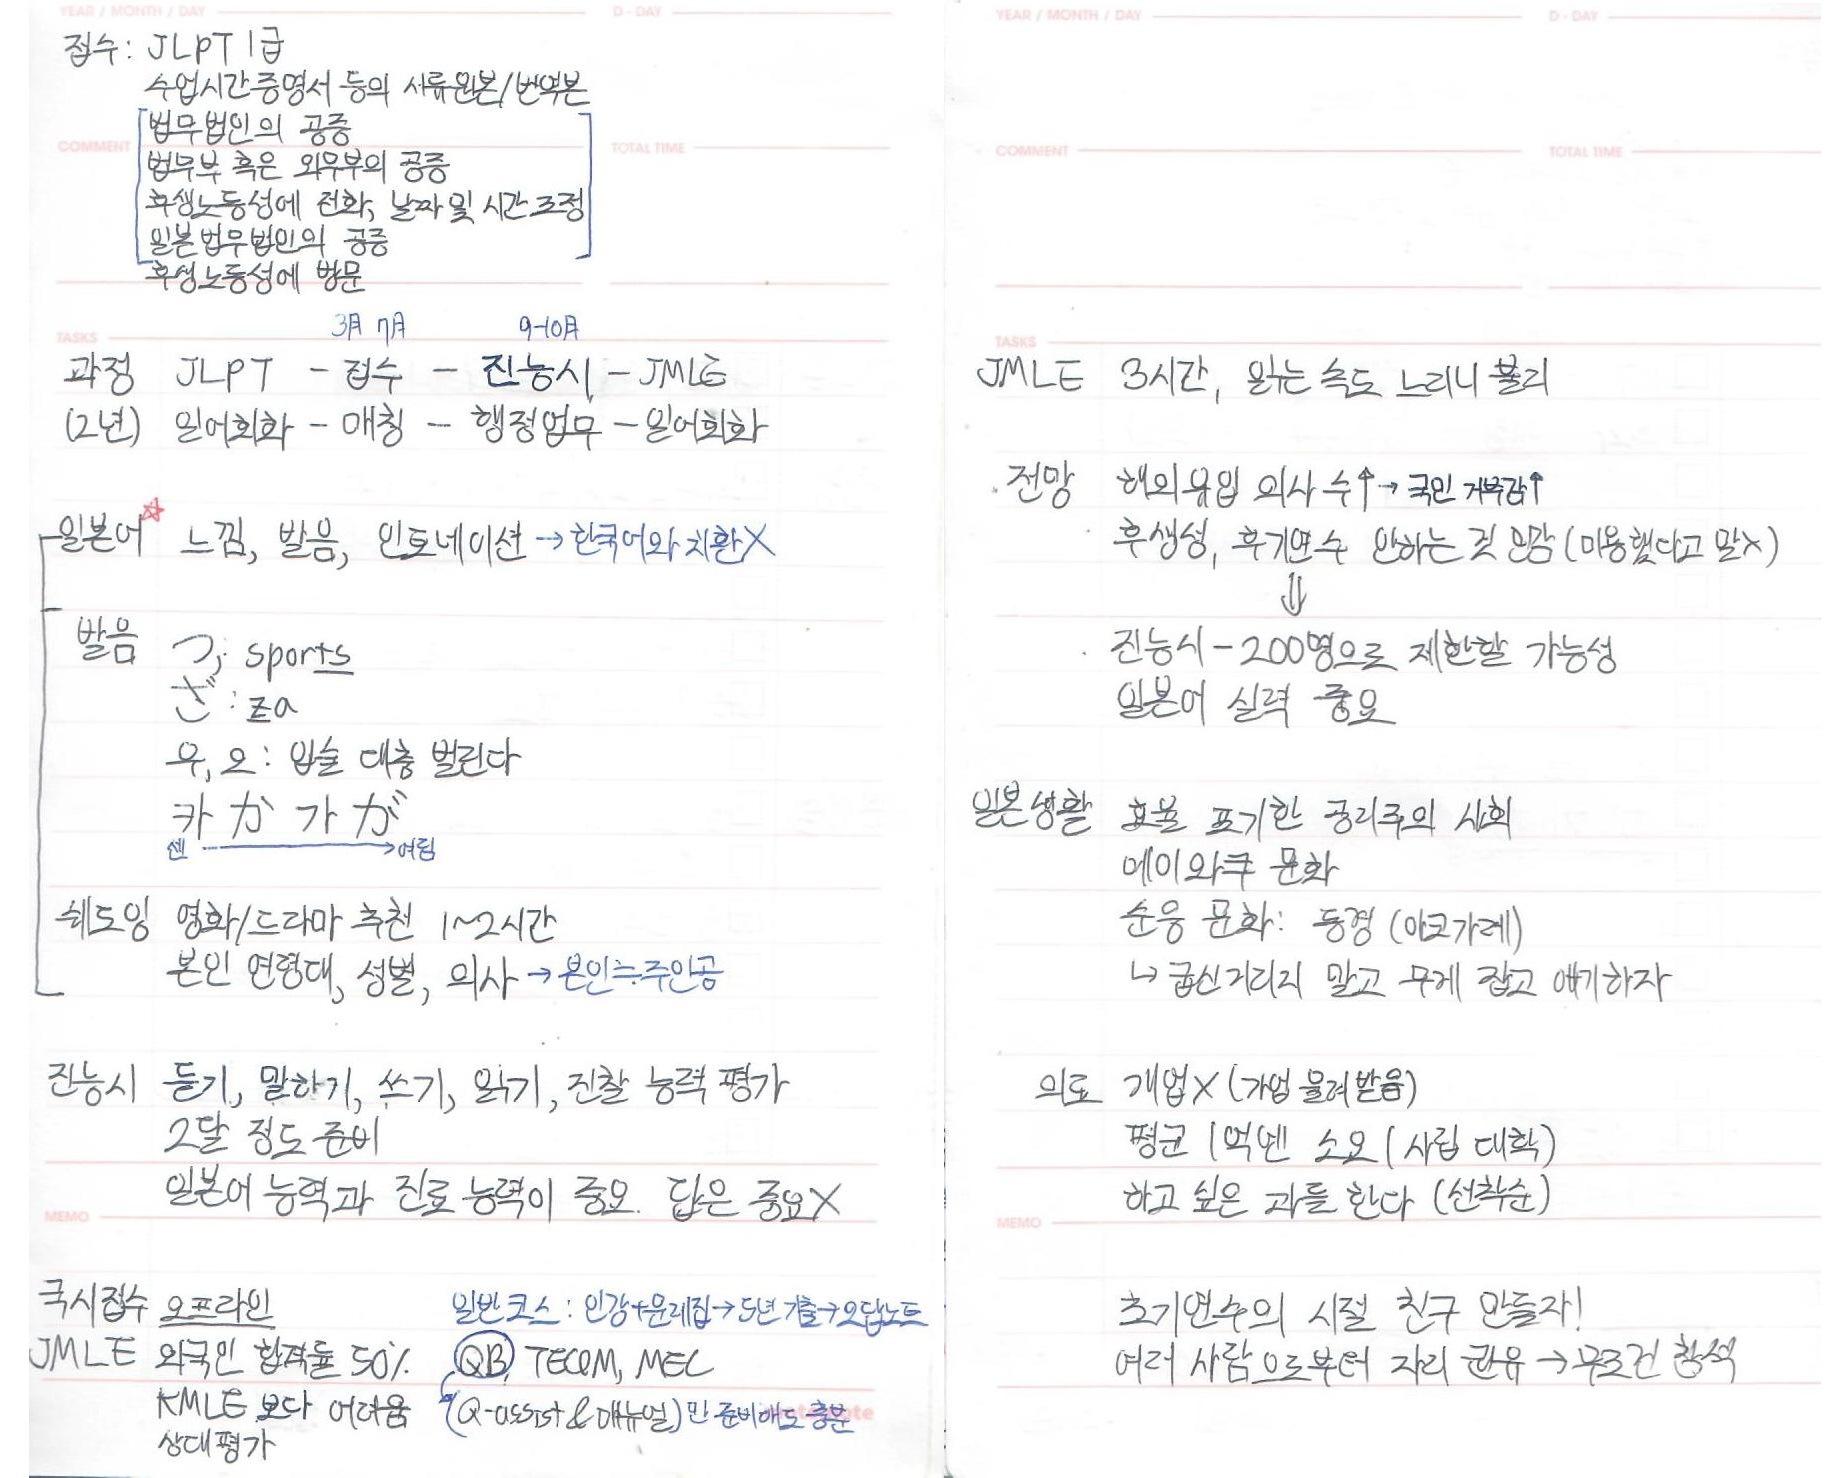 YEAR / MONTH / DAY
D - DAY
접수: JLPT 1급
수업시간증명서 등의 서류원본/번역본
법무법인의 공증
COMMENT
TOTAL TIME
법무부 혹은 외무부의 공증
후생노동성에 전화, 날짜 및 시간 조정
일본법무법인의 공증
후생노동성에 방문
3月 7月 9-10月
TASKS
과정 JLPT - 접수 - 진능시 - JMLE
(2년) 일어회화 - 매칭 - 행정업무 - 일어회화
일본어☆ 느낌, 발음, 인토네이션 → 한국어와 치환X
발음 つ; sports
ざ: za
우, 오: 입술 대충 벌린다
카 か 가 が
센 → 여림
쉐도잉 영화/드라마 추천 1~2시간
본인 연령대, 성별, 의사 → 본인≒주인공
진능시 듣기, 말하기, 쓰기, 읽기, 진찰 능력 평가
2달 정도 준비
일본어 능력과 진료 능력이 중요. 답은 중요X
MEMO
국시접수 오프라인
일반코스: 인강+문제집→5년 기출→오답노트
JMLE 외국인 합격률 50%
QB, TECOM, MEC
KMLE 보다 어려움
(Q-assist & 매뉴얼)만 준비해도 충분
상대평가
YEAR / MONTH / DAY
D - DAY
COMMENT
TOTAL TIME
TASKS
JMLE 3시간, 읽는 속도 느리니 불리
전망 해외유입 의사 수↑→ 국민 거부감↑
후생성, 후기연수 안하는 것 민감 (미용했다고 말X)
⇓
진능시 - 200명으로 제한할 가능성
일본어 실력 중요
일본생활 효율 포기한 공리주의 사회
메이와쿠 문화
순응 문화: 동경 (아코가레)
↳ 굽신거리지 말고 무게 잡고 얘기하자
의료 개업X (가업 물려받음)
평균 1억엔 소요 (사립 대학)
하고 싶은 과를 한다 (선착순)
MEMO
초기연수의 시절 친구 만들자!
여러 사람으로부터 자리 권유 → 무조건 참석